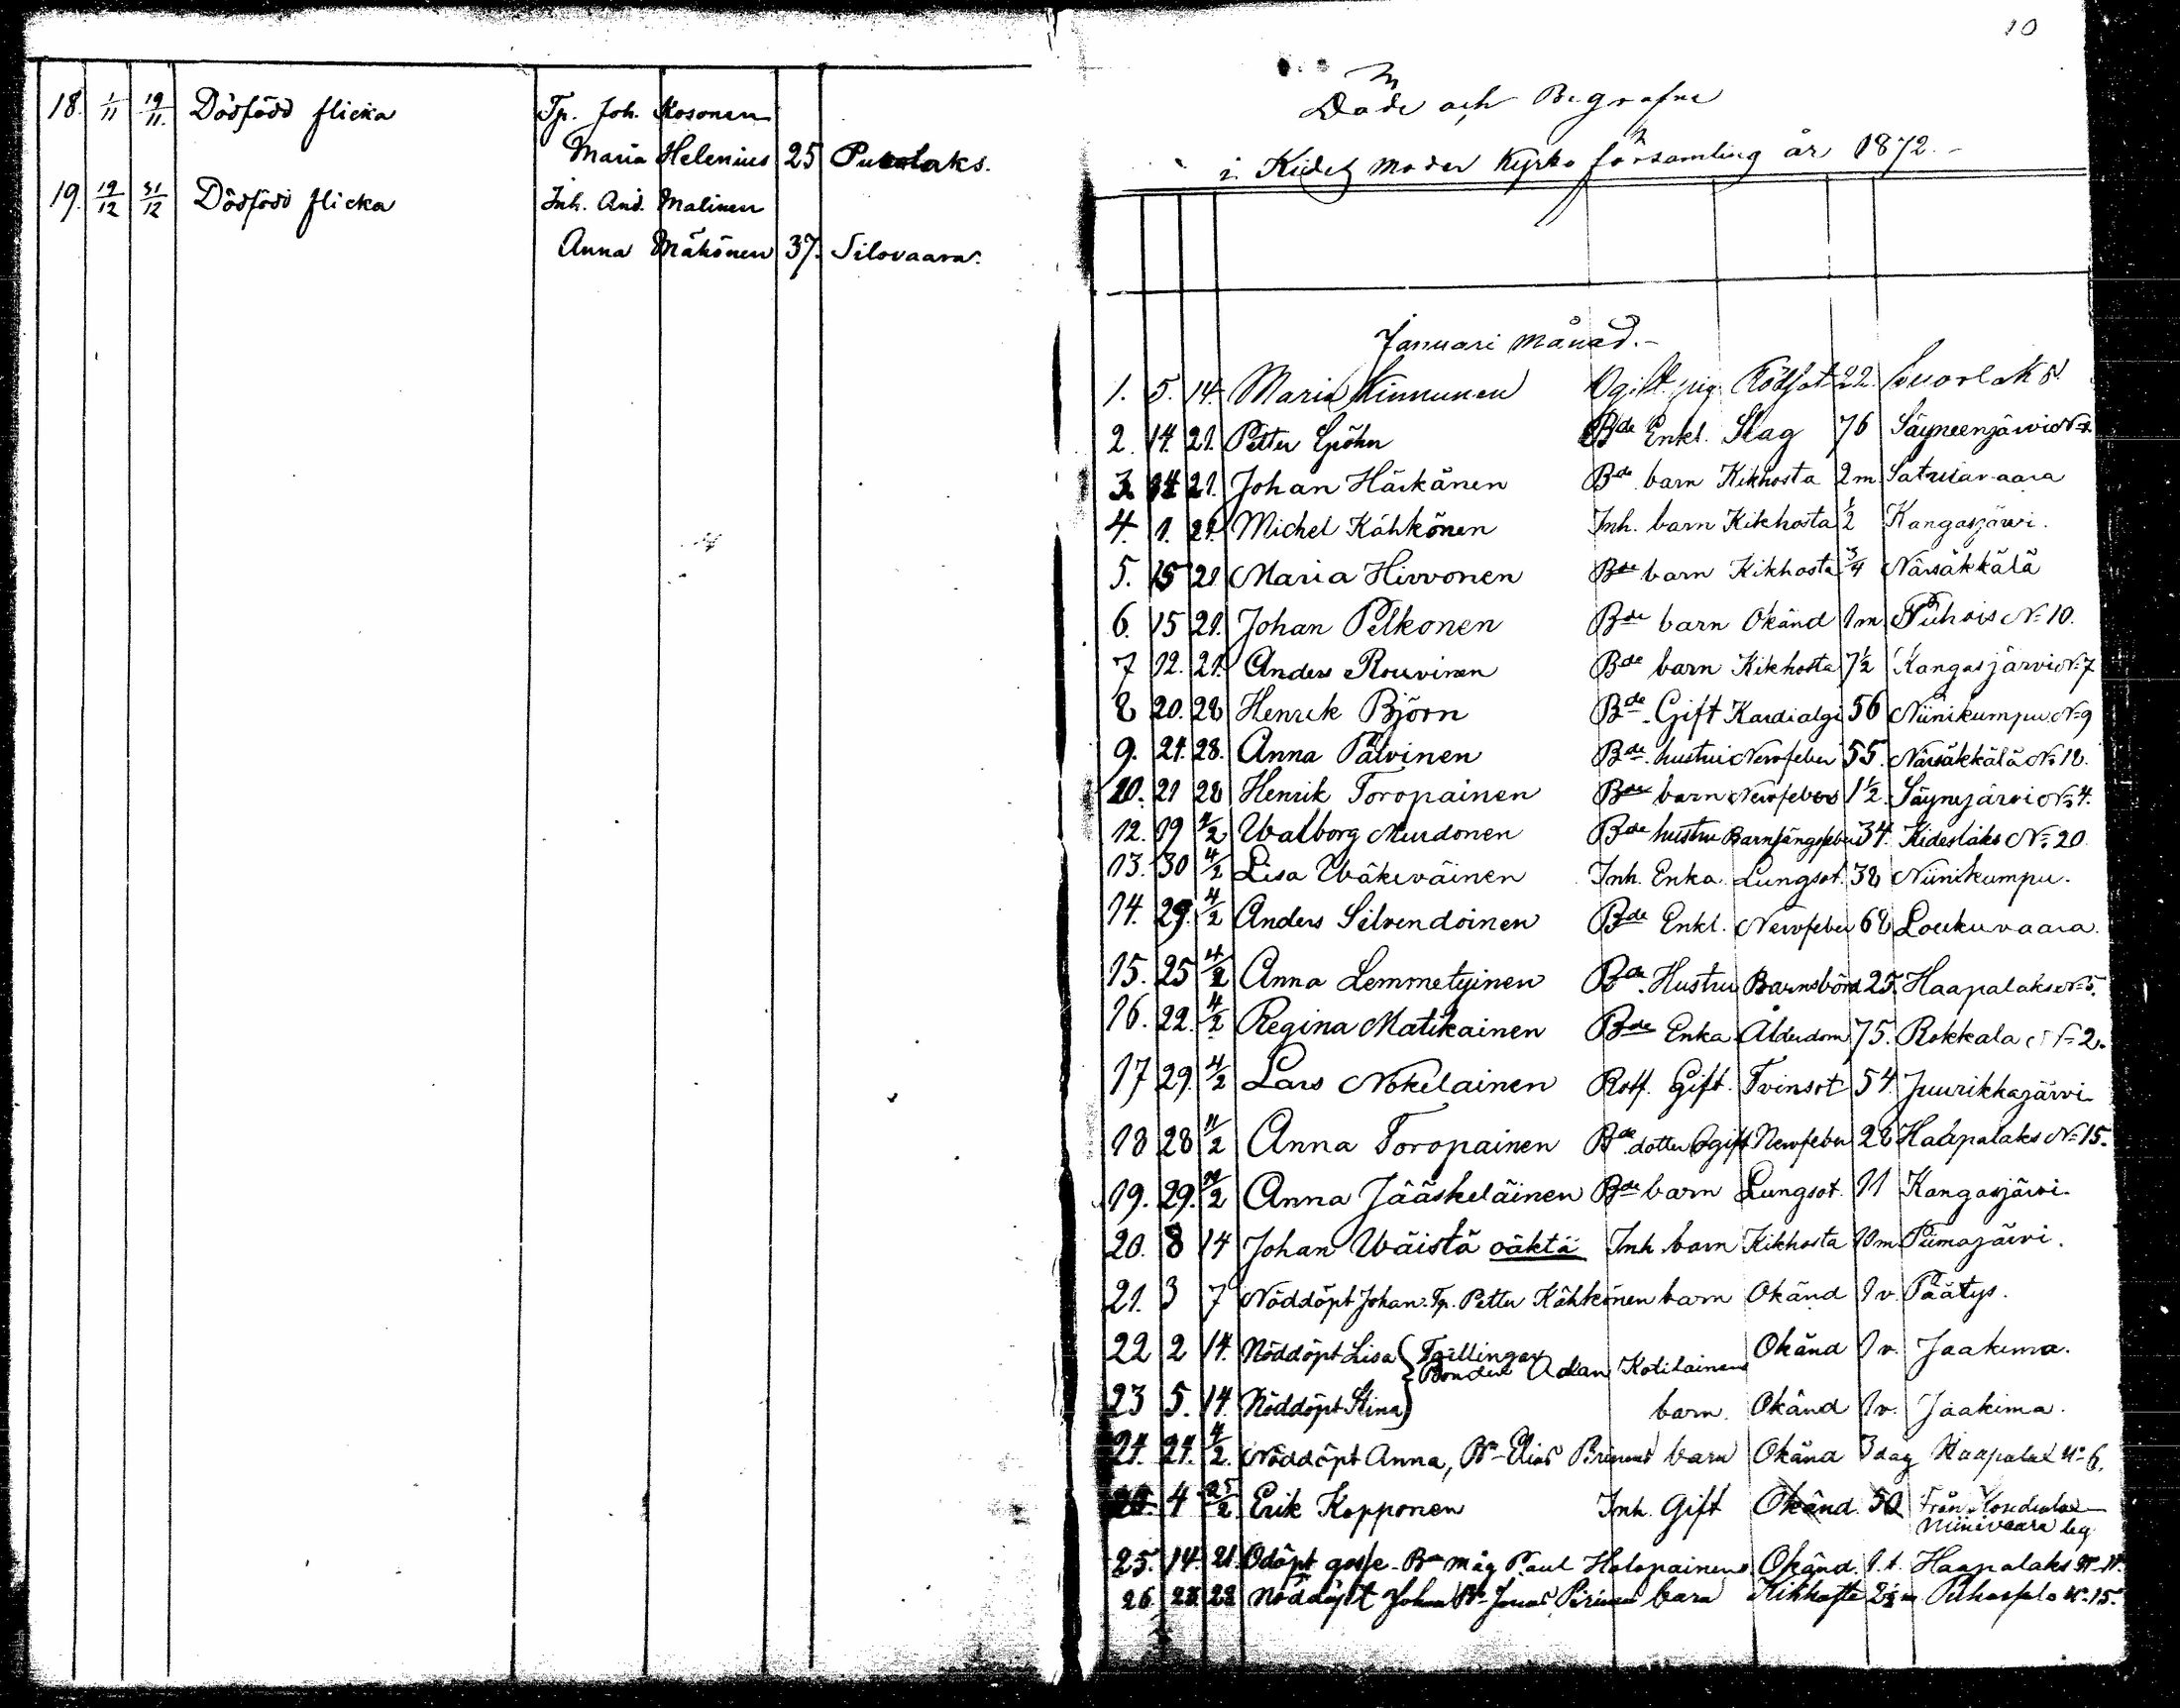 18. 1/11 19/11. Dödfödd flicka Tp. Joh. Kosonen
Maria Helenius 25 laks.
19. 19/12 31/12 Dödfödd flicka Inh. And. Malinen
Anna Mähönen 37. Silovaara.
10
Döde och Begrafne
i Kides moder Kyrko församling år 1872.-
Januari månad.-
1. 5. 14. Maria Kinnunen Ogift pig. Rödsot 22.
2. 14. 21. Petter Spöhn Bde Enkl. Slag 76 Säyneenjärvi
3. 14 21. Johan Härkänen Bde barn Kikhosta 2 m.
4. 1. 21. Michel Kähkönen Inh. barn Kikhosta 1/2 Kangasjärvi.
5. 15 21 Maria Hirvonen Bde barn Kikhosta 3/4 Närsäkkälä
6. 15 21. Johan Pelkonen Bde barn Okänd 1 m Puhois № 10.
7 12. 21. Anders Rouvinen Bde barn Kikhosta 7 1/2 Kangasjärvi № 7
8 20. 28 Henrik Björn Bde. Gift Kardialgi 56 Niinikumpu № 9
9. 21. 28. Anna Pälvinen Bde. hustru Nervfeber 55. Närsäkkälä № 18.
10. 21 28 Henrik Toropainen Bde barn Nervfeber 1 1/2. Säynejärvi № 4.
12. 19 4/2 Walborg Murdonen Bde hustru Barnsängsfeber 34. Kideslaks № 20.
13. 30 4/2 Lisa Wäkeväinen Inh. Enka Lungsot. 38 Niinikumpu.
14. 29. 4/2 Anders Silvendoinen Bde Enkl. Nervfeber 68 Loukuvaara.
15. 25 4/2 Anna Lemmetyinen Bde. Hustru Barnsbörd 25. Haapalaks № 5.
16. 22. 4/2 Regina Matikainen Bde Enka Ålderdom 75. Rokkala № 2.
17 29. 4/2 Lars Nokelainen Rotf. Gift. Tvinsot 54. Juurikkajärvi
18 28 11/2 Anna Toropainen Bde. dotter Ogift Nervfeber 28 Haapalaks № 15.
19. 29. 11/2 Anna Jääskeläinen Bde barn Lungsot. 11 Kangasjärvi.
20. 8 14 Johan Wäistä oäkta Inh barn Kikhosta 10 m. Piimajärvi.
21. 3 7 Nöddöpt Johan. Tp. Petter Kähkönen barn Okänd 1 v. Päätys.
22 2 14. Nöddöpt Lisa Tvillingar Okänd 1 v. Jaakima.
Bonden Adam Kotilainens
23 5. 14. Nöddöpt Stina barn. Okänd 1 v. Jaakima.
24. 21. 4/2. Nöddöpt Anna, Bn Elias Pirinens barn Okänd 3 dag Haapalax № 6.
25. 4 25/2 Erik Kopponen Inh. Gift Okänd. 50 Från
Niinivaara beg.
25. 14. 21. Odöpt gosse. Bn måg Paul Holopainens Okänd. 1. t. Haapalaks
26 28 Nöddöpt Johan Bn Jonas Pirinens barn Kikhosta 2 1/2 m № 15.